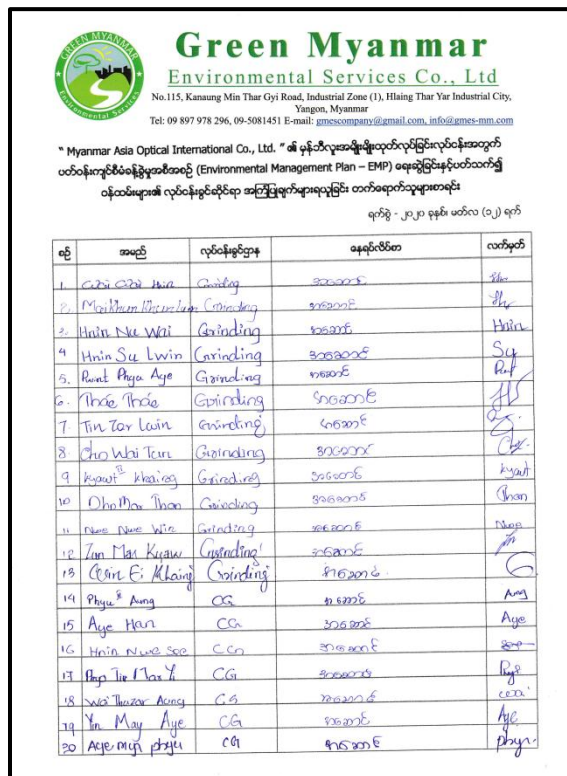 GREEN MYANMAR
Environmental Services
Green Myanmar
Environmental Services Co., Ltd
No.115, Kanaung Min Thar Gyi Road, Industrial Zone (1), Hlaing Thar Yar Industrial City,
Yangon, Myanmar
Tel: 09 897 978 296, 09-5081451 E-mail: gmescompany@gmail.com, info@gmes-mm.com
" Myanmar Asia Optical International Co., Ltd. " ၏ မှန်ဘီလူးအမျိုးမျိုးထုတ်လုပ်ခြင်းလုပ်ငန်းအတွက်
ပတ်ဝန်းကျင်စီမံခန့်ခွဲမှုအစီအစဉ် (Environmental Management Plan – EMP) ရေးဆွဲခြင်းနှင့်ပတ်သက်၍
ဝန်ထမ်းများ၏ လုပ်ငန်းခွင်ဆိုင်ရာ အကြံပြုချက်များရယူခြင်း တက်ရောက်သူများစာရင်း
ရက်စွဲ - ၂၀၂၀ ခုနှစ်၊ မတ်လ (၁၂) ရက်
စဉ် အမည် လုပ်ငန်းခွင်ဌာန နေရပ်လိပ်စာ လက်မှတ်
1. Hnin Grinding အဆောင်
2. Grinding အဆောင်
3. Hnin Nu Wai Grinding အဆောင် Hnin
4 Hnin Su Lwin Grinding အဆောင် Su
5. Phyu Aye Grinding အဆောင်
6. Thae Thae Grinding အဆောင်
7. Tin Zar Lwin Grinding အဆောင်
8. Cho Wai Tun Grinding အဆောင်
9 Kyawt Khaing Grinding အဆောင် Kyawt
10 Ohn Mar Than Grinding အဆောင် Than
11 Nwe Nwe Win Grinding အဆောင် Nwe
12 Zun Mar Kyaw Grinding အဆောင်
13 Ei Khaing Grinding အဆောင်
14 Phyu Aung CG အဆောင် Aung
15 Aye Han CG အဆောင် Aye
16 Hnin Nwe Soe CG အဆောင်
17 CG အဆောင်
18 Wai Thazar Aung CG အဆောင်
19 Yin May Aye CG အဆောင် Aye
20 Aye Myn Phyu CG အဆောင် Phyu.